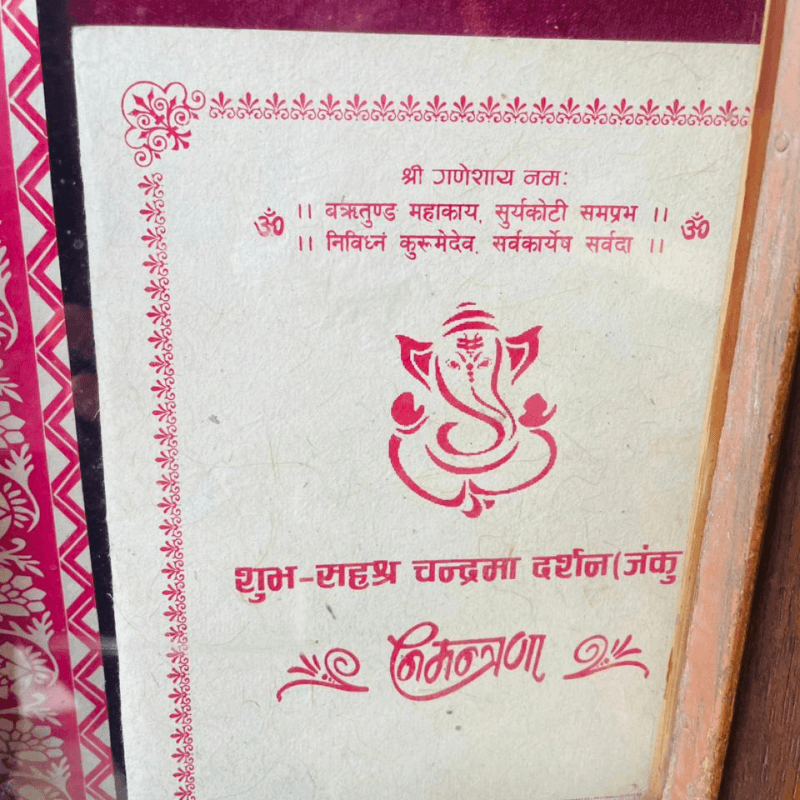 श्री गणेशाय नमः
ॐ ।। बऋतुण्ड महाकाय, सुर्यकोटी समप्रभ ।। ॐ
।। निविध्नं कुरूमेदेव, सर्वकार्येष सर्वदा ।।
शुभ-सहश्र चन्द्रमा दर्शन(जंकु
निमन्त्रणा